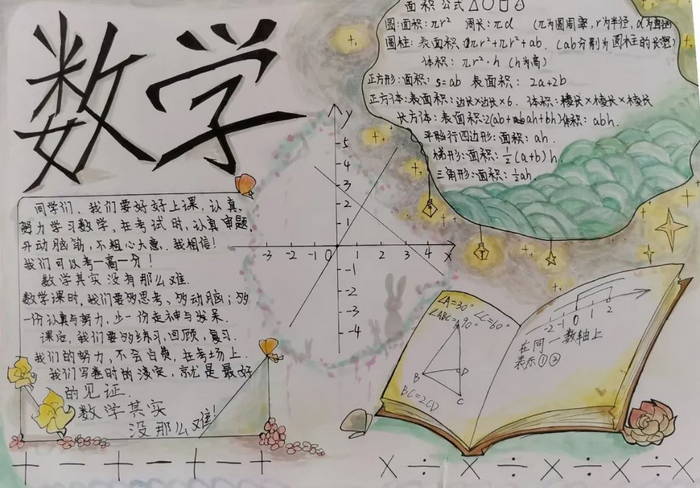 数学
面积公式△○□
圆:面积:πr² 周长:πd (π为圆周率,r为半径,d为直径)
圆柱:表面积:πr²+πr²+ab (ab分别为圆柱的长宽)
体积:πr²·h (h为高)
正方形:面积:s=ab 表面积:2a+2b
正方体:表面积:边长×边长×6. 体积:棱长×棱长×棱长
长方体:表面积:2(ab+ah+bh)体积:abh.
平行四边形:面积:ah.
梯形:面积:½(a+b)h
三角形:面积:½ah
同学们,我们要好好上课,认真
努力学习数学,在考试时,认真审题,
开动脑筋,不粗心大意,我相信!
我们可以考一高一分!
数学其实没有那么难.
数学课时,我们要多思考,多动脑;多
一份认真与努力,少一份走神与发呆.
课后,我们要多练习,回顾,复习.
我们的努力,不会白费,在考场上.
我们写卷时的淡定,就是最好
的见证.
数学其实
没那么难!
y
5
4
3
2
1
-3 -2 -1 0 1 2 3 4 x
-1
-2
-3
-4
∠A=30°
∠ABC=90° ∠C=60°
A
B
D
C
BC=2CD
-2 -1 0 1 2
在同一数轴上
表示①②
+ - + - + - + -
× ÷ × ÷ × ÷ × ÷